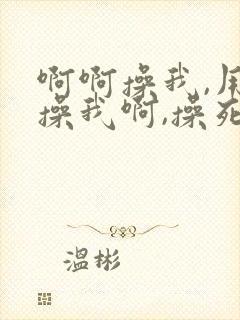 啊啊操我,用
操我啊,操死
温彬